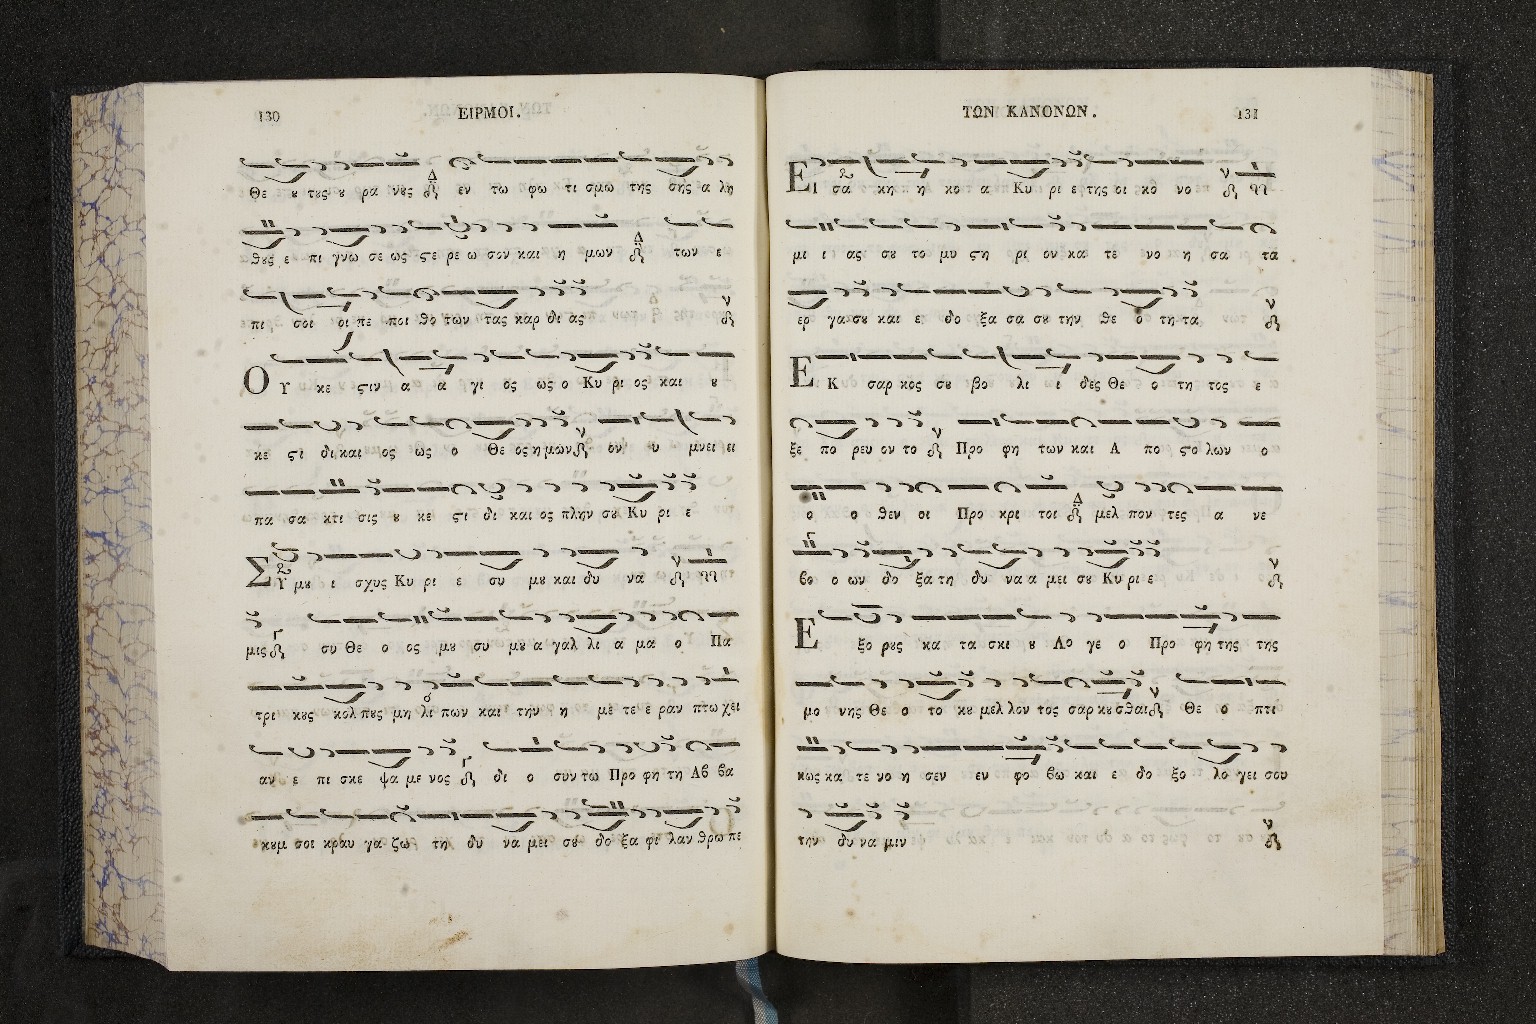 130
ΕΙΡΜΟΙ.
Θε ȣ τȣς ȣ ρα νȣς εν τω φω τι σμω της σης α λη
θȣς ε πι γνω σε ως ϛε ρε ω σον και η μων των ε
πι σοι οι πε ποι θο των τας καρ δι ας
ΟΥ κε ϛιν α α γι ος ως ο Κυ ρι ος και ȣ
κε ϛι δι και ος ως ο Θε ος η μων ον υ μνει ει
πα σα κτι σις ȣ κε ϛι δι και ος πλην σȣ Κυ ρι ε
ΣΥ μȣ ι σχυς Κυ ρι ε συ μȣ και δυ να
μις συ Θε ο ος μȣ συ μȣ α γαλ λι α μα ο Πα
τρι κȣς κολ πȣς μη λι πων και την η με τε ε ραν πτω χει
αν ε πι σκε ψα με νος δι ο συν τω Προ φη τη Αβ βα
κȣμ σοι κραυ γα ζω τη δυ να μει σȣ δο ξα φι λαν θρω πε
ΤΩΝ ΚΑΝΟΝΩΝ.
131
ΕΙ σα κη η κο α Κυ ρι ε της οι κο νο
μι ι ας σȣ το μυ ϛη ρι ον κα τε νο η σα τα
ερ γα σȣ και ε δο ξα σα σȣ την θε ο τη τα
ΕΚ σαρ κος σȣ βο λι ι δες Θε ο τη τος ε
ξε πο ρευ ον το Προ φη των και Α πο ϛο λων ο
ο ο θεν οι Προ κρι τοι μελ πον τες α νε
βο ο ων δο ξα τη δυ να α μει σȣ Κυ ρι ε
Ε ξο ρȣς κα τα σκι ȣ Λο γε ο Προ φη της της
μο νης Θε ο το κȣ μελ λον τος σαρ κȣσθαι Θε ο πτι
κως κα τε νο η σεν εν φο βω και ε δο ξο λο γει σου
την δυ να μιν